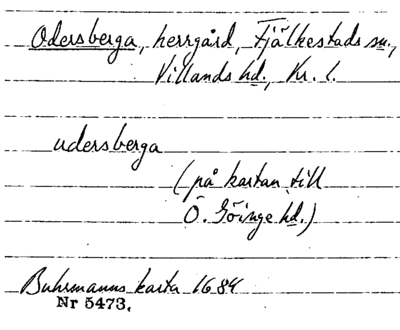 Odersberga, herrgård, Fjälkestads sn.,
Villands hd., Kr. l.
udersberga
(på kartan till
Ö. Göinge hd.)
Buhrmanns karta 1684
Nr 5473.